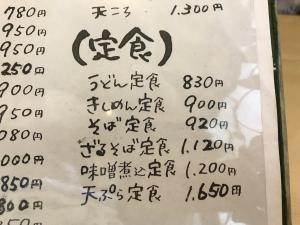 780円
950円
950円
250円
900円
950円
080円
000円
850円
天ころ 1.300円
(定食)
うどん定食 830円
きしめん定食 900円
そば定食 920円
ざるそば定食 1.120円
味噌煮込定食 1.200円
天ぷら定食 1.650円